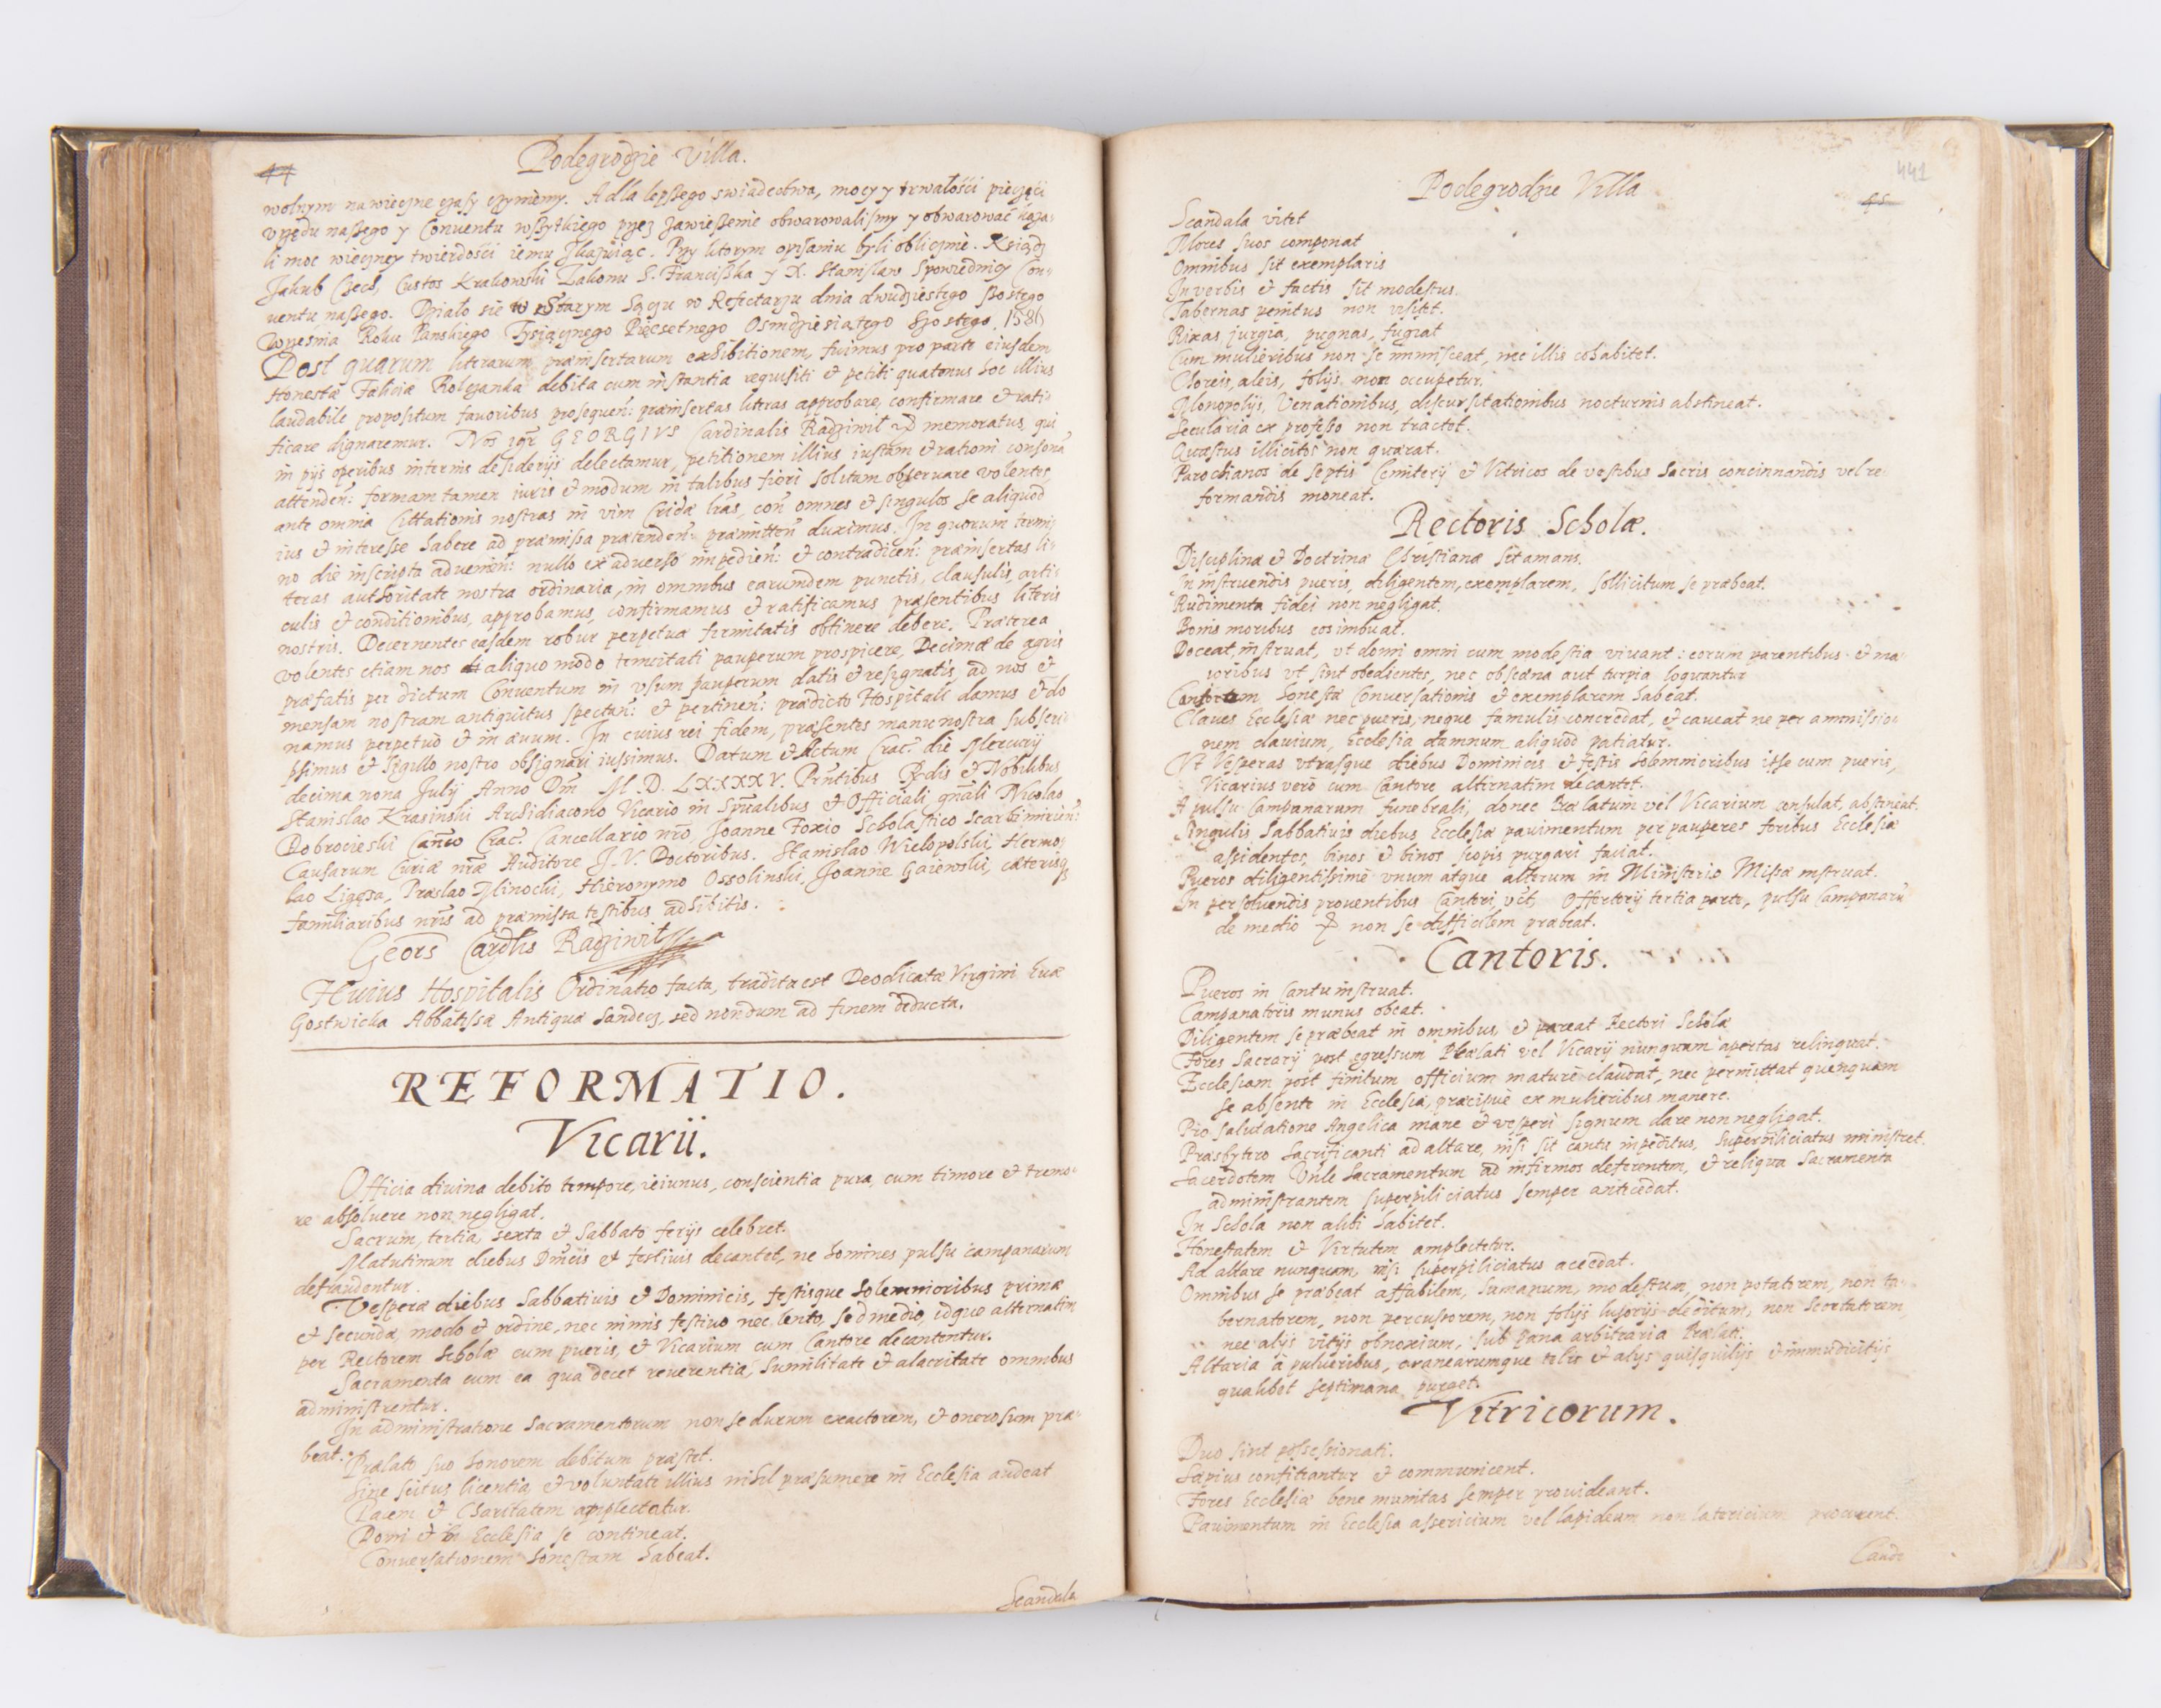 44
Podegrodzie Villa.
wolnym na wieczne czasy czyniemy. A dla lepszego swiadectwa, mocy y trwałości pieczęci
vrzędu naszego y Conventu wszytkiego przez zawieszenie obwarowalismy y obwarować kaza-
li moc wieczney twierdości iemu Przy ktorym opisaniu byli oblicznie. Ksiądz
Jakub Czech, Custos Krakowski Zakonu S. Franciszka y X. Stanisław Spowiednicy Con-
uentu naszego. Działo się w Starym Sączu w Refectarzu dnia dwudziestego szostego
Wrzesnia Roku Panskiego Tysiącznego Pięcsetnego Osmdziesiątego Szostego. 1586
Post quarum literarum præinsertarum exhibitionem, fuimus pro parte eiusdem
Honestæ Feliciæ Rolczanka debita cum instantia requisiti et petiti quatenus hoc illius
laudabile propositum fauoribus prosequen: præinsertas literas approbare, confirmare et rati-
ficare dignaremur. Nos igr GEORGIVS Cardinalis Radziwił memoratus, qui
in pijs operibus internis desiderijs delectamur, petitionem illius iustam et rationi consonã
attenden: formam tamen iuris et modum in talibus fieri solitum obseruare volentes,
ante omnia Cittationis nostras in vim Cridæ lras, con omnes et singulos se aliquod
ius et interesse habere ad præmissa prætenden: præmitten duximus. In quorum termi-
no die inscripto aduenien: nullo ex aduerso impedien: et contradicen: præinsertas li-
teras authoritate nostra ordinaria, in omnibus earumdem punctis, clausulis, arti-
culis et conditionibus, approbamus, confirmamus et ratificamus præsentibus literis
nostris. Decernentes easdem robur perpetuæ firmitatis obtinere debere. Præterea
volentes etiam nos aliquo modo tenuitati pauperum prospicere, Decimæ de agris
præfatis per dictum Conuentum in vsum pauperum datis et resignatis, ad nos et
mensam nostram antiquitus spectan: et pertinen: prædicto Hospitali damus et do
namus perpetuò et in æuum. In cuius rei fidem, præsentes manu nostra subscri-
psimus et sigillo nostro obsignari iussimus. Datum et Actum Crac. die Mercurij
decima nona July Anno Dni M. D. LXXXXV. Pntibus Rdis et Nobilibus
Stanislao Krasinski Archidiacono Vicario in Spualibus et Officiali gnali Nicolao
Dobrocieski Canco Crac. Cancellario nro, Joanne Foxio Scholastico Scarbimirien:
Causarum Curiæ nræ Auditore J. V. Doctoribus. Stanislao Wielopolski, Hermo-
lao Ligęza, Præslao Minocki, Hieronymo Ossolinski, Joanne Gaiewski, cæterisq
familiaribus nris ad præmissa testibus adhibitis.
Georg Cardlis Radziwił
Huius Hospitalis Ordinatio facta, tradita est Deodicatæ Virgini Euæ
Gostwicka Abbatissæ Antiquæ Sandecz, sed nondum ad finem deducta.
REFORMATIO.
Vicarii.
Officia diuina debito tempore, ieiunus, conscientia pura, cum timore et tremo-
re absoluere non negligat.
Sacrum, tertia, sexta et Sabbato ferijs celebret.
Matutinum diebus Dnicis et festiuis decantet, ne homines pulsu campanarum
defraudentur.
Vesperæ diebus Sabbatiuis et Dominicis, festisque solennioribus primæ
et secundæ, modo et ordine, nec nimis festiuo nec lento, sed medio, idque alternatim
per Rectorem Scholæ cum pueris, et Vicarium cum Cantore decantentur.
Sacramenta cum ea qua decet reuerentia, humilitate et alacritate omnibus
administrentur.
In administratione Sacramentorum non se durum exactorem, et onerosum præ-
beat.
Prælato suo honorem debitum præstet.
Sine scitus licentia et voluntate illius nihil præsumere in Ecclesia audeat
Pacem et Charitatem amplectatur.
Domi et in Ecclesia se contineat.
Conuersationem honestam habeat.
Scandala
441
Podegrodzie Villa
45
Scandala vitet
Mores suos componat
Omnibus sit exemplaris
In verbis et factis sit modestus.
Tabernas penitus non visitet.
Rixas jurgia, pugnas, fugiat
Cum mulieribus non se immisceat, nec illis cohabitet.
Choreis, aleis, folijs non occupetur.
Monopolijs, Venationibus, discursitationibus nocturnis abstineat.
Secularia ex professo non tractet.
Quæstus illicitos non quærat.
Parochianos de septis Cemiterij et Vitricos de vestibus Sacris concinnandis vel re-
formandis moneat.
Rectoris Scholæ.
Disciplinæ et Doctrinæ Christianæ sit amans.
In instruendis pueris, diligentem, exemplarem, sollicitum se præbeat.
Rudimenta fidei non negligat.
Bonis moribus eos imbuat.
Doceat, instruat, vt domi omni cum modestia viuant: eorum parentibus et ma-
ioribus vt sint obedientes, nec obscæna aut turpia loquantur
Cantorem honestæ Conuersationis et exemplarem habeat.
Claues Ecclesiæ nec pueris, neque famulis concredat, et caueat ne per ammissio-
nem clauium, Ecclesia damnum aliquod patiatur.
Vt Vesperas vtrasque diebus Dominicis et festis solennioribus ipse cum pueris,
Vicarius verò cum Cantore alternatim decantet.
A pulsu Campanarum funebrali, donec Prælatum vel Vicarium consulat, abstineat.
Singulis Sabbatiuis diebus Ecclesiæ pauimentum per pauperes foribus Ecclesiæ
assidentes, binos et binos scopis purgari faciat.
Pueros diligentissimè vnum atque alterum in Ministerio Missæ instruat.
In persoluendis prouentibus Cantori, vct, Offertorij tertia parte, pulsu Campanarũ
de medio non se difficilem præbeat.
Cantoris.
Pueros in Cantu instruat.
Campanatoris munus obeat.
Diligentem se præbeat in omnibus, et pareat Rectori Scholæ
Fores Sacrarij post egressum Prælati vel Vicarij nunquam apertas relinquat.
Ecclesiam post finitum officium maturè claudat, nec permittat quenquam
se absente in Ecclesia, præcipuè ex mulieribus manere.
Pro salutatione Angelica mane et vesperi signum dare non negligat.
Præsbytero Sacrificanti ad altare, nisi sit cantu impeditus, superpiliciatus ministret.
Sacerdotem Vnle Sacramentum ad infirmos deferentem, et reliqua Sacramenta
administrantem superpiliciatus semper antecedat.
In Schola non alibi habitet.
Honestatem et Virtutem amplectetur.
Ad altare nunquam, nisi superpiliciatus accedat.
Omnibus se præbeat affabilem, humanum, modestum, non potatorem, non ta-
bernatorem, non percussorem, non folijs lusorijs deditum, non Scortatorem,
nec alijs vitijs obnoxium, sub pæna arbitraria Prælati.
Altaria à pulueribus, aranearumque telis et alijs quisquilijs et immudicitijs
qualibet septimana purget.
Vitricorum.
Duo sint possessionati.
Sæpius confiteantur et communicent.
Fores Ecclesiæ bene munitas semper prouideant.
Pauimentum in Ecclesia assericium vel lapideum non latericium procurent.
Cande